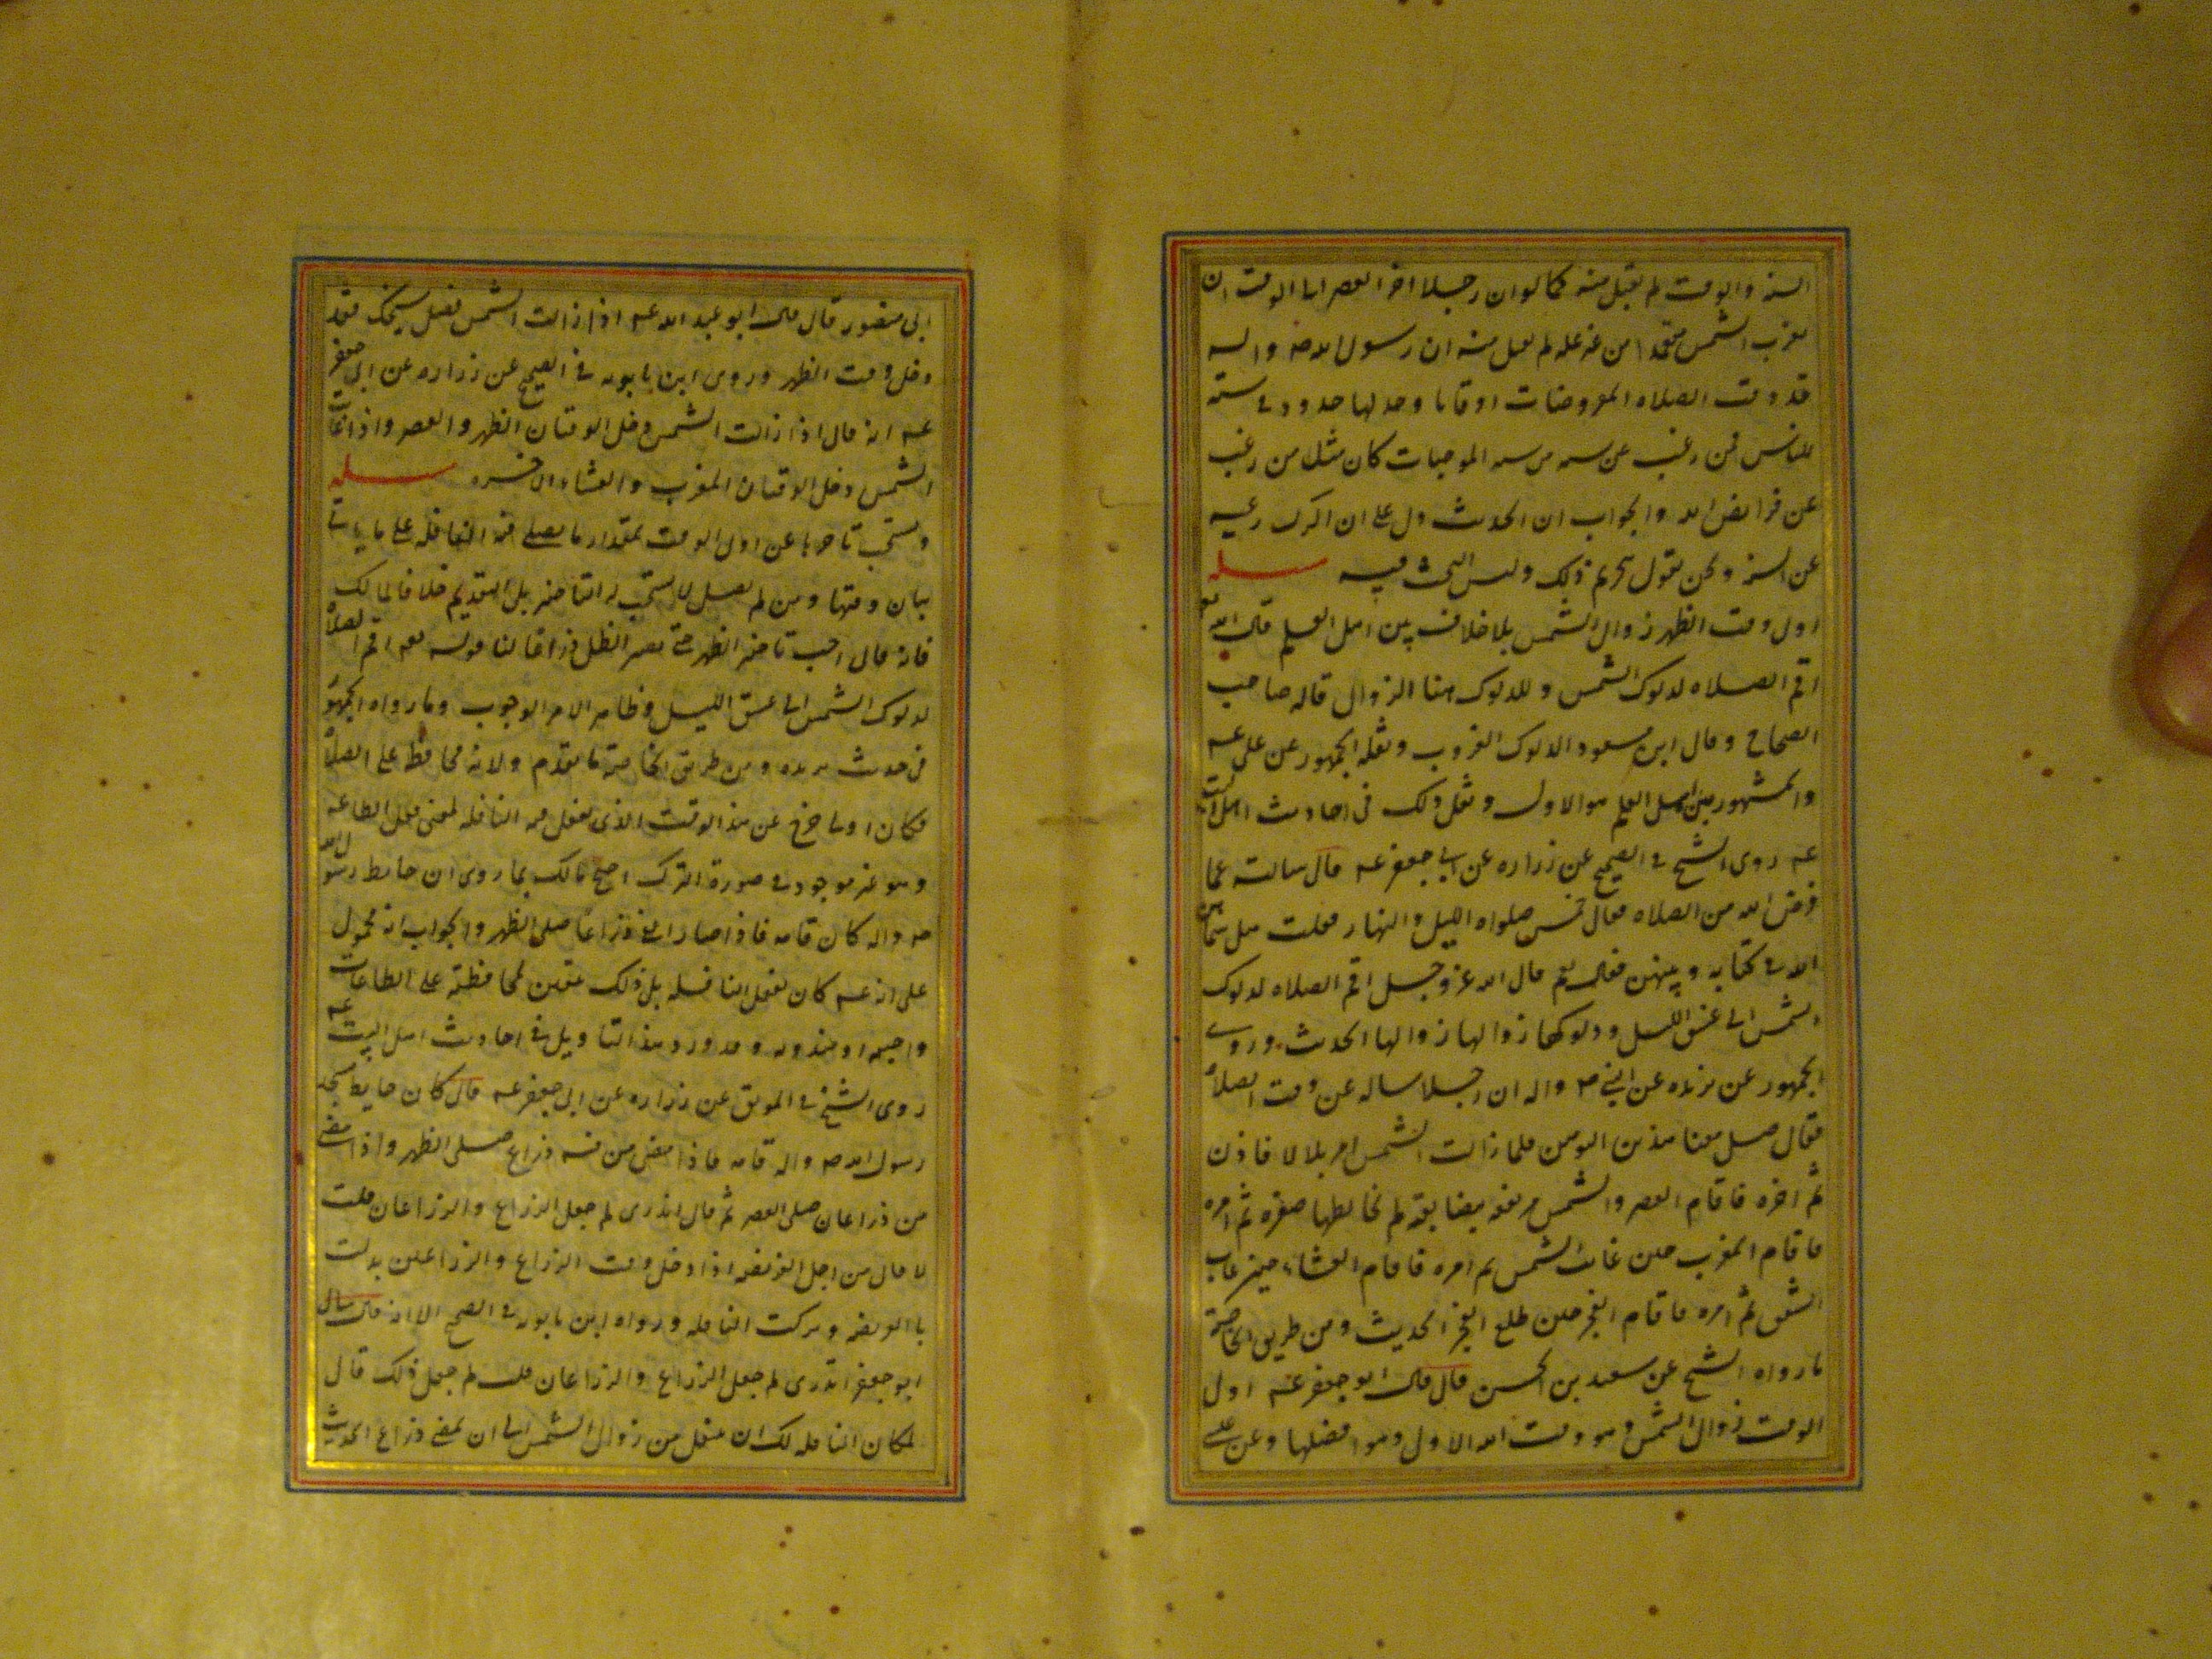 السنه والوقت لم تقبل منه كما لو ان رجلا اخر العصر الى الوقت ان
تغرب الشمس متعمدا من غير عله لم تقبل منه ان رسول الله صه واله
قد وقت الصلاه المفروضات اوقاتا وحد لها حدود في سنته
للناس فمن رغب عن سنه من سنه الموجبات كان مثل من رغب
عن فرايض الله والجواب ان الحديث دل على ان الترك رغبه
عن السنه ونحن نقول تحريم ذلك وليس البحث فيه مسله
اول وقت الظهر زوال الشمس بلا خلاف بين اهل العلم قال الله تع
اقم الصلاه لدلوك الشمس والدلوك هنا الزوال قاله صاحب
الصحاح وقال ابن مسعود الدلوك الغروب ونقله الجمهور عن علي عه
والمشهور بين اهل العلم هو الاول ونقل ذلك في احاديث اهل البيت
عه روى الشيخ في الصحيح عن زراره عن ابي جعفر عه قال سالته عما
فرض الله من الصلاه فقال خمس صلواه الليل والنهار فقلت هل سماهن
الله في كتابه وبينهن فقال نعم قال الله عز وجل اقم الصلاه لدلوك
الشمس الى غسق الليل ودلوكها زوالها زوالها الحديث وروى
الجمهور عن بريده عن النبي صه واله ان رجلا ساله عن وقت الصلاة
فقال صل معنا هذين اليومين فلما زالت الشمس امر بلالا فاذن
ثم امره فاقام العصر والشمس مرتفعه بيضا نقيه لم تخالطها صفره ثم امره
فاقام المغرب حين غابت الشمس ثم امره فاقام العشاء حين غاب
الشفق ثم امره فاقام الفجر حين طلع الفجر الحديث ومن طريق الخاصة
ما رواه الشيخ عن سعيد بن الحسن قال قال ابو جعفر عه اول
الوقت زوال الشمس وهو وقت الله الاول وهو افضلها وعن علي
ابي منصور قال قال ابو عبد الله عه اذا زالت الشمس فصل سبحتك فقد
دخل وقت الظهر وروى ابن بابويه في الصحيح عن زراره عن ابي جعفر
عه انه قال اذا زالت الشمس دخل الوقتان الظهر والعصر واذا غابت
الشمس دخل الوقتان المغرب والعشاء الاخره مسله
ويستحب تاخيرها عن اول الوقت بمقدار ما يصلي فيه النافله على ما ياتي
بيان وقتها ومن لم يصل لا يستحب له التاخير بل التقديم خلافا لمالك
فانه قال احب تاخير الظهر حتى يصير الظل ذراعا لنا قوله تعه اقم الصلاة
لدلوك الشمس الى غسق الليل وظاهر الامر الوجوب وما رواه الجمهور
في حديث بريده ومن طريق الخاصة ما تقدم ولانه محافظ على الصلاة
فكان اولى خرج عن هذا الوقت الذي تفعل فيه النافله لمعنى فعل الطاعه
وهو غير موجود في صورة الترك احتج مالك بما روى ان حايط رسول الله
صه واله كان قامه فاذا صار الفئ ذراعا صلى الظهر والجواب انه محمول
على انه عه كان يفعل النافله بل ذلك متعين لمحافظته على الطاعات
واجبه او مندوبه وقد ورد هذا التاويل في احاديث اهل البيت عه
روى الشيخ في الموثق عن زراره عن ابي جعفر عه قال كان حايط مسجد
رسول الله صه واله قامه فاذا مضى من فيه ذراع صلى الظهر واذا مضى
من ذراعان صلى العصر ثم قال اتدرى لم جعل الذراع والذراعان قلت
لا قال من اجل الفريضه اذا دخل وقت الذراع والذراعين بدات
بالفريضه وتركت النافله ورواه ابن بابويه في الصحيح الا انه قال سال
ابو جعفر اتدرى لم جعل الذراع والذراعان قلت لم جعل ذلك قال
لمكان النافله لك ان تنفل من زوال الشمس الى ان يمضي ذراع الحديث